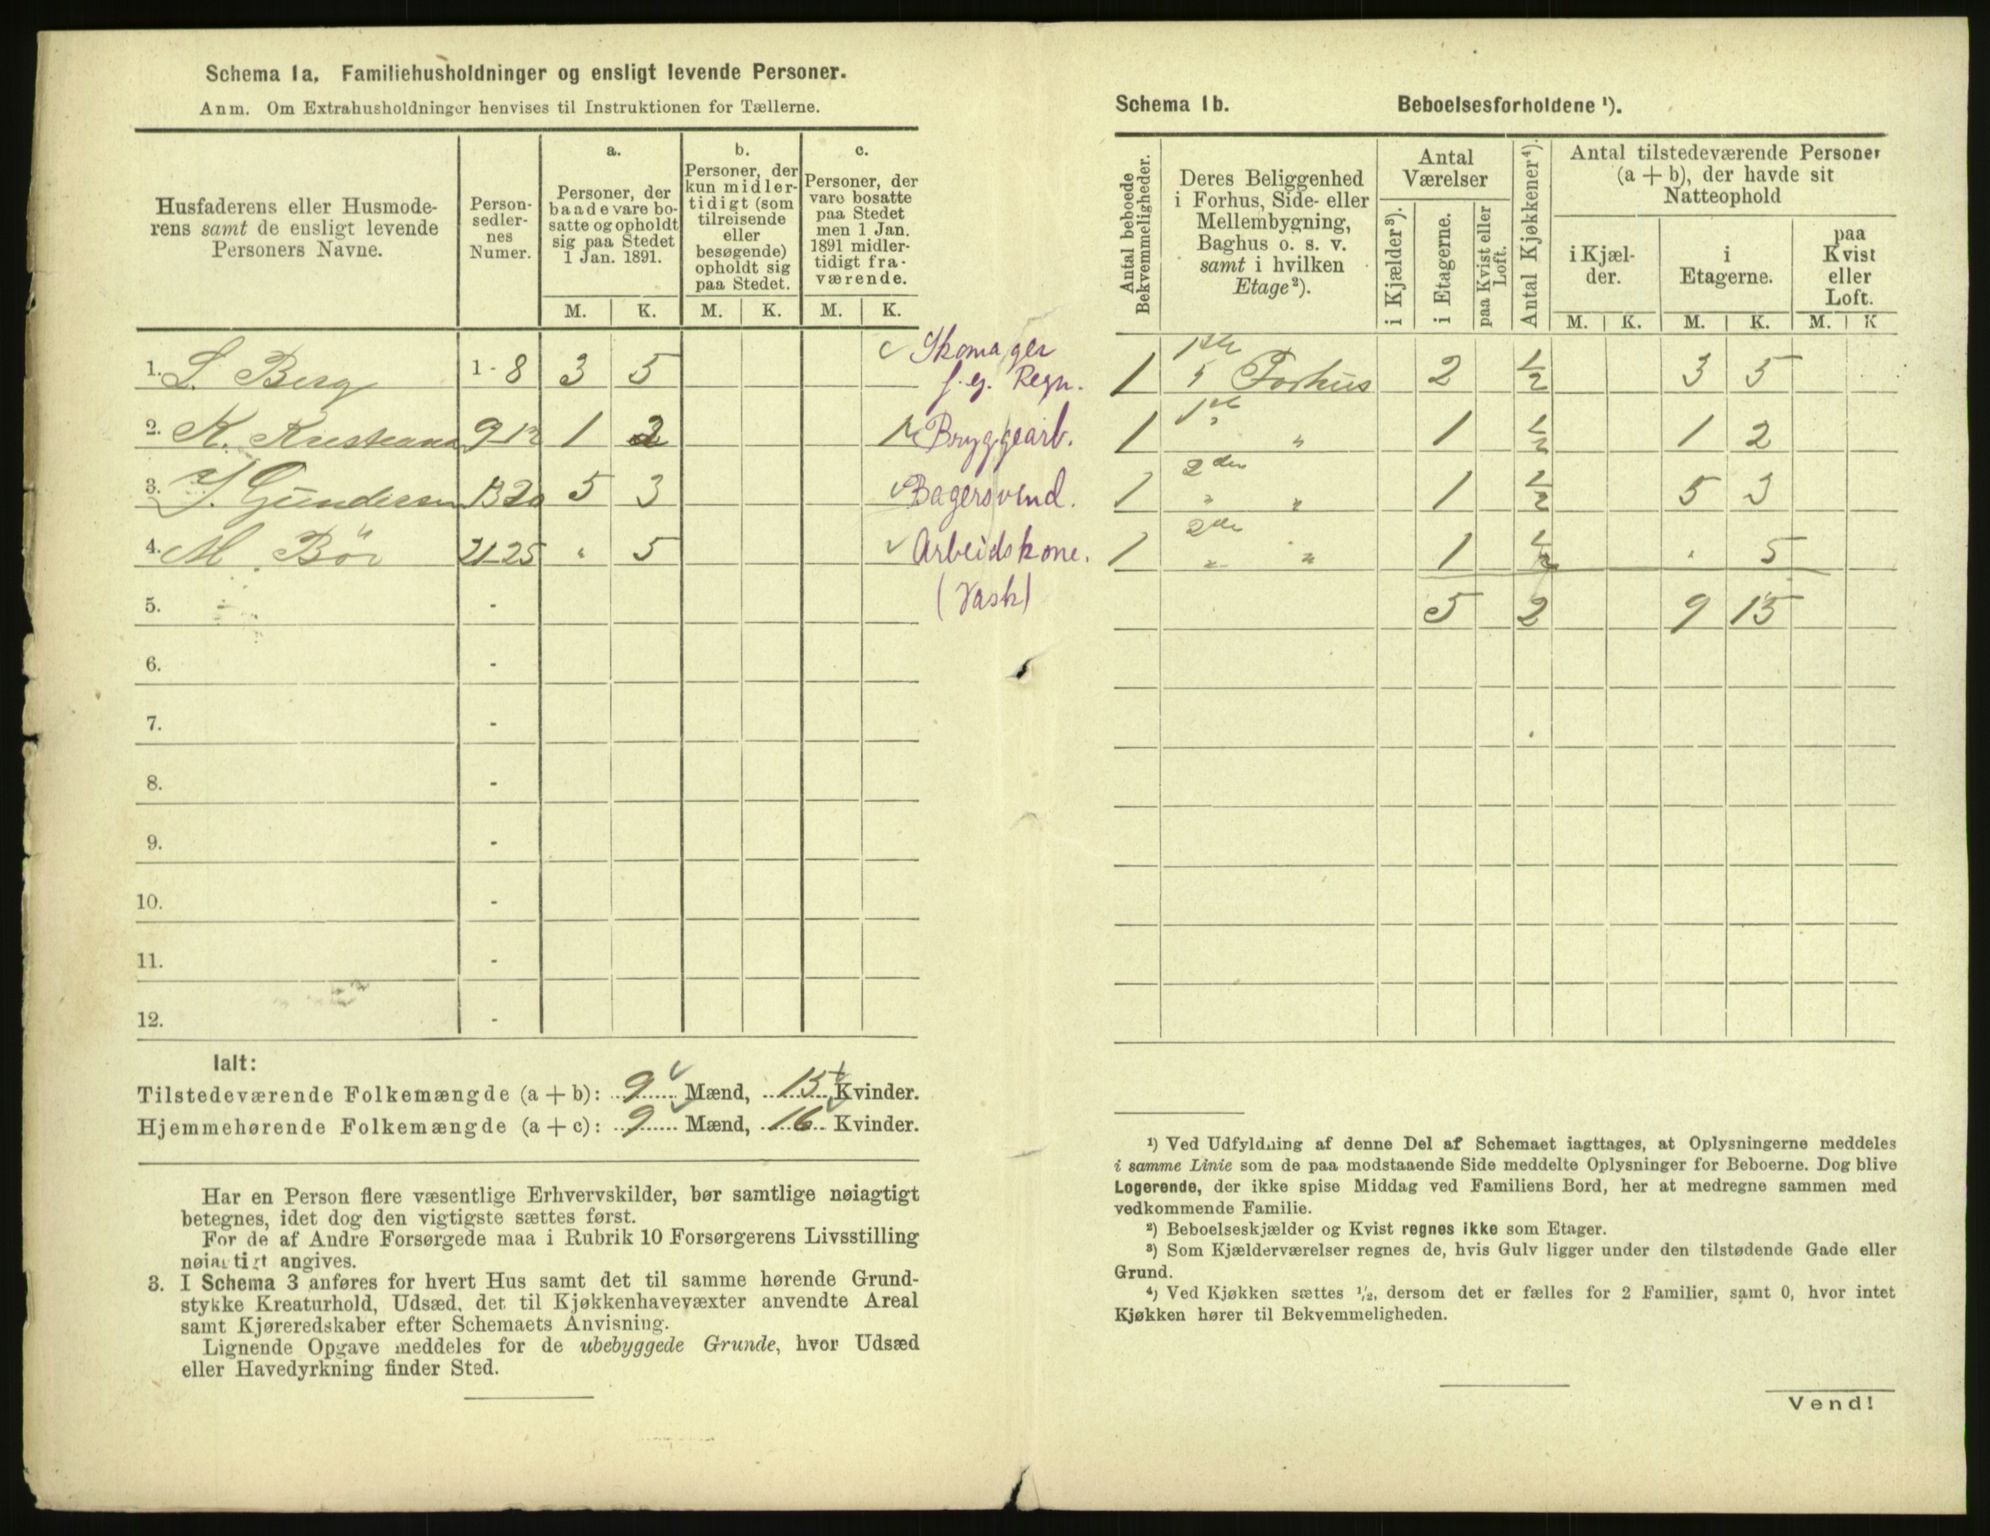 Schema 1a. Familiehusholdninger og ensligt levende Personer.
Anm. Om Extrahusholdninger henvises til Instruktionen for Tællerne.
Husfaderens eller Husmode-
rens samt de ensligt levende
Personers Navne.
Person-
sedler-
nes
Numer.
a.
Personer, der
baade vare bo-
satte og opholdt
sig paa Stedet
1 Jan. 1891.
b.
Personer, der
kun midler-
tidigt (som
tilreisende
eller
besøgende)
opholdt sig
paa Stedet.
c.
Personer, der
vare bosatte
paa Stedet
men 1 Jan.
1891 midler-
tidigt fra-
værende.
M. K. M. K. M. K.
1. L. Berg 1 - 8 3 5 Skomager
f. eg. Regn.
2. K. 9 12 1 2 1 Bryggearb.
3. J. Gundersen 13 20 5 3 Bagersvend.
4. M. Bör 21-25 " 5 Arbeidskone.
5. - (Vask)
6. -
7. -
8. -
9. -
10. -
11. -
12. -
Ialt:
Tilstedeværende Folkemængde (a + b): 9 Mænd, 15 Kvinder.
Hjemmehørende Folkemængde (a + c): 9 Mænd, 16 Kvinder.
Har en Person flere væsentlige Erhvervskilder, bør samtlige nøiagtigt
betegnes, idet dog den vigtigste sættes først.
For de af Andre Forsørgede maa i Rubrik 10 Forsørgerens Livsstilling
nøiagtigt angives.
3. I Schema 3 anføres for hvert Hus samt det til samme hørende Grund-
stykke Kreaturhold, Udsæd, det til Kjøkkenhavevæxter anvendte Areal
samt Kjøreredskaber efter Schemaets Anvisning.
Lignende Opgave meddeles for de ubebyggede Grunde, hvor Udsæd
eller Havedyrkning finder Sted.
Schema 1b. Beboelsesforholdene ¹).
Antal beboede
Bekvemmeligheder.
Deres Beliggenhed
i Forhus, Side- eller
Mellembygning,
Baghus o. s. v.
samt i hvilken
Etage²).
Antal
Værelser
i Kjælder³).
i Etagerne.
paa Kvist eller
Loft.
Antal Kjøkkener⁴).
Antal tilstedeværende Personer
(a + b), der havde sit
Natteophold
i Kjæl-
der.
i
Etagerne.
paa
Kvist
eller
Loft.
M. K. M. K. M. K
1 1ste Forhus 2 ½ 3 5
1 1ste " 1 ½ 1 2
1 2den " " 1 ½ 5 3
1 2den " " 1 ½ " 5
5 2 9 15
¹) Ved Udfyldning af denne Del af Schemaet iagttages, at Oplysningerne meddeles
i samme Linie som de paa modstaaende Side meddelte Oplysninger for Beboerne. Dog blive
Logerende, der ikke spise Middag ved Familiens Bord, her at medregne sammen med
vedkommende Familie.
²) Beboelseskjælder og Kvist regnes ikke som Etager.
³) Som Kjælderværelser regnes de, hvis Gulv ligger under den tilstødende Gade eller
Grund.
⁴) Ved Kjøkken sættes ½, dersom det er fælles for 2 Familier, samt 0, hvor intet
Kjøkken hører til Bekvemmeligheden.
Vend!